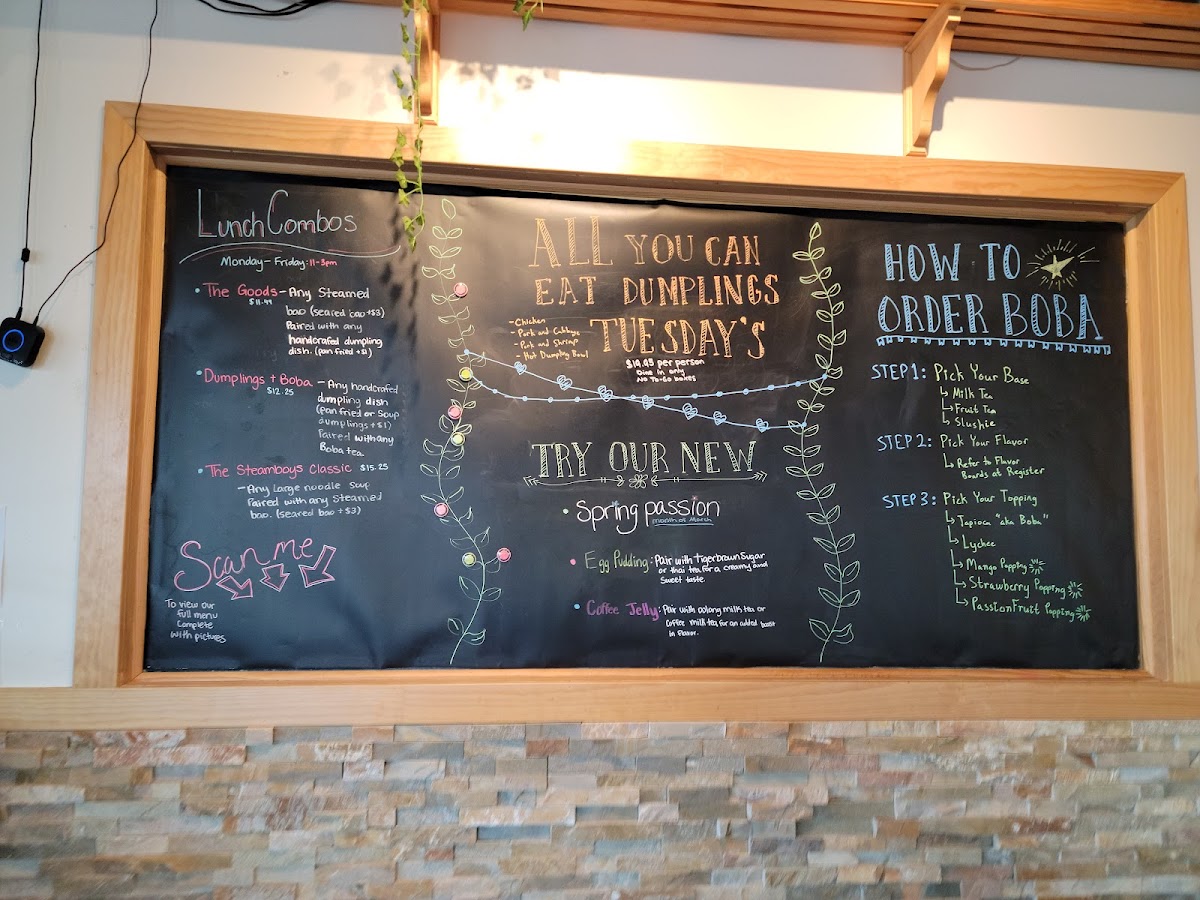 Lunch Combos
Monday - Friday: 11-3pm
• The Goods - Any Steamed
$11.99
bao (seared bao +$3)
Paired with any
handcrafted dumpling
dish. (pan fried +$1)
• Dumplings + Boba - Any handcrafted
$12.25
dumpling dish
(pan fried or Soup
dumplings +$1)
Paired with any
Boba tea.
• The Steamboys Classic $15.25
- Any Large noodle Soup
Paired with any Steamed
bao. (seared bao +$3)
Scan me
To view our
full menu
Complete
with pictures
ALL YOU CAN
EAT DUMPLINGS
TUESDAY'S
- Chicken
- Pork and Cabbage
- Pork and Shrimp
- Hot Dumpling Bowl
per person
Dine in only
No To-Go boxes
TRY OUR NEW
• Spring passion
month of March
• Egg Pudding: Pair with tigerbrown Sugar
or thai tea for a creamy and
Sweet taste.
• Coffee Jelly: Pair with oolong milk tea or
Coffee milk tea for an added boost
in flavor.
HOW TO
ORDER BOBA
STEP 1: Pick Your Base
Milk Tea
Fruit Tea
Slushie
STEP 2: Pick Your Flavor
Refer to Flavor
Boards at Register
STEP 3: Pick Your Topping
Tapioca "aka Boba"
Lychee
Mango Popping
Strawberry Popping
PassionFruit Popping